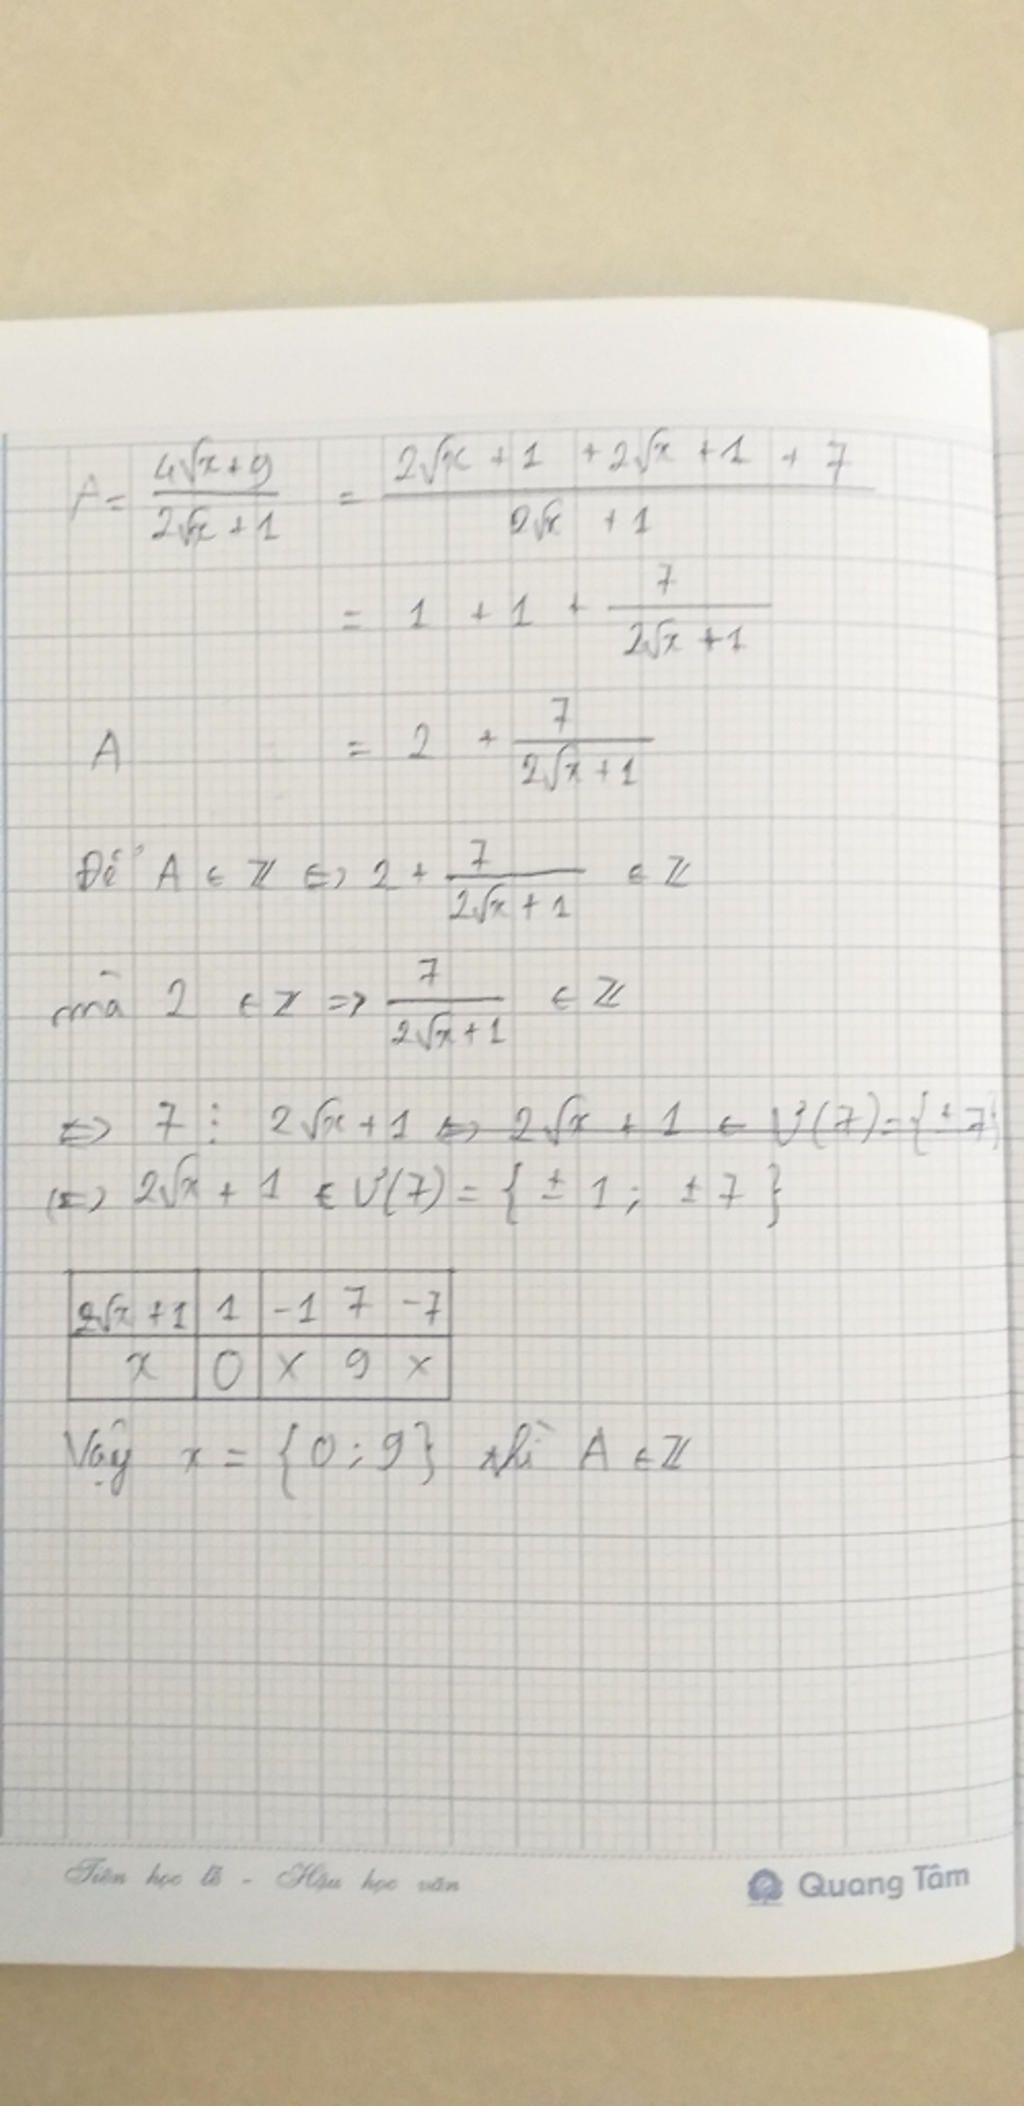 A = \frac{4\sqrt{x}+9}{2\sqrt{x}+1} = \frac{2\sqrt{x}+1+2\sqrt{x}+1+7}{2\sqrt{x}+1}
= 1 + 1 + \frac{7}{2\sqrt{x}+1}
A = 2 + \frac{7}{2\sqrt{x}+1}
Để A ∈ ℤ ⇔ 2 + \frac{7}{2\sqrt{x}+1} ∈ ℤ
mà 2 ∈ ℤ ⇒ \frac{7}{2\sqrt{x}+1} ∈ ℤ
⇔ 7 ⋮ 2√x + 1 ⇔ 2√x + 1 ∈ Ư(7) = {±7}
(⇔) 2√x + 1 ∈ Ư(7) = {±1; ±7}
2√x + 1 1 -1 7 -7
x 0 × 9 ×
Vậy x = {0; 9} thì A ∈ ℤ
Tiên học lễ - Hậu học văn
Quang Tâm